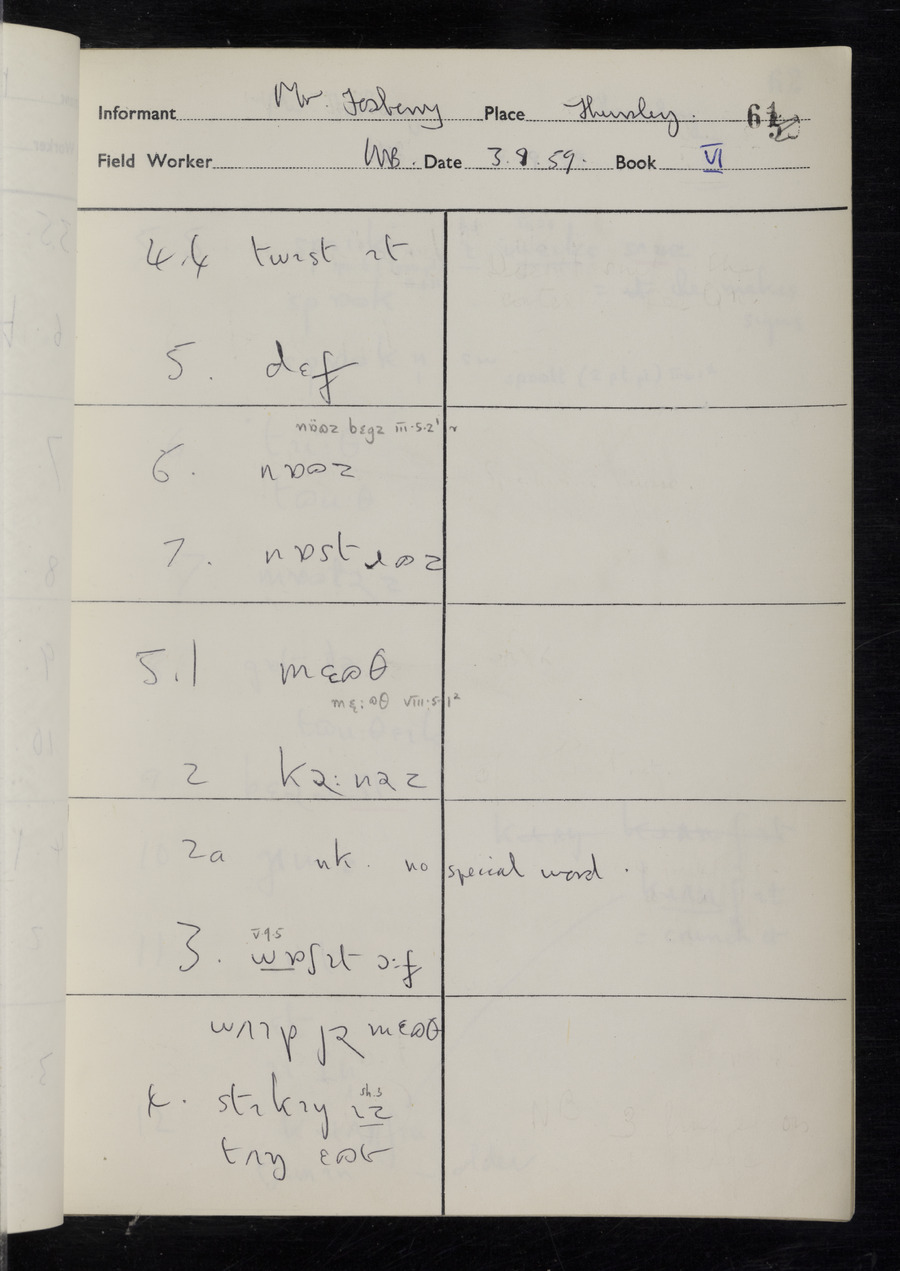 Informant Mr. Fosberry Place Thursley. 61
Field Worker WB. Date 3.8.59. Book VI
4.4 twɪst ɪt
5. dɛf
nöʊz bɛgz III.5.2¹
6. nɒʊz
7. nɒstɹʊz
5.1 mɛʊθ
mɛ:ʊθ VIII.5.1²
2 kɔ:nəz
2a nk. no special word.
V.9.5
3. wɒʃɪt ɔ:f
wʌɪp jə mɛʊθ
sh.3
4. stɪkɪŋ ɪz
tʌŋ ɛʊt